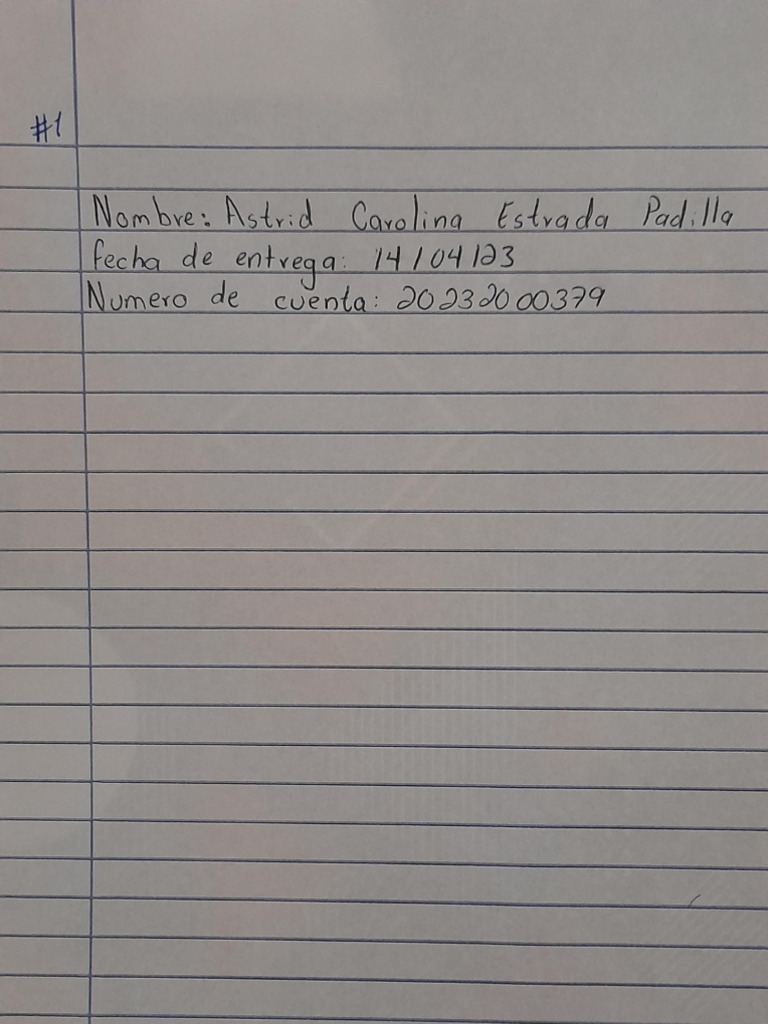 #1
Nombre: Astrid Carolina Estrada Padilla
fecha de entrega: 14/04/23
Numero de cuenta: 20232000379